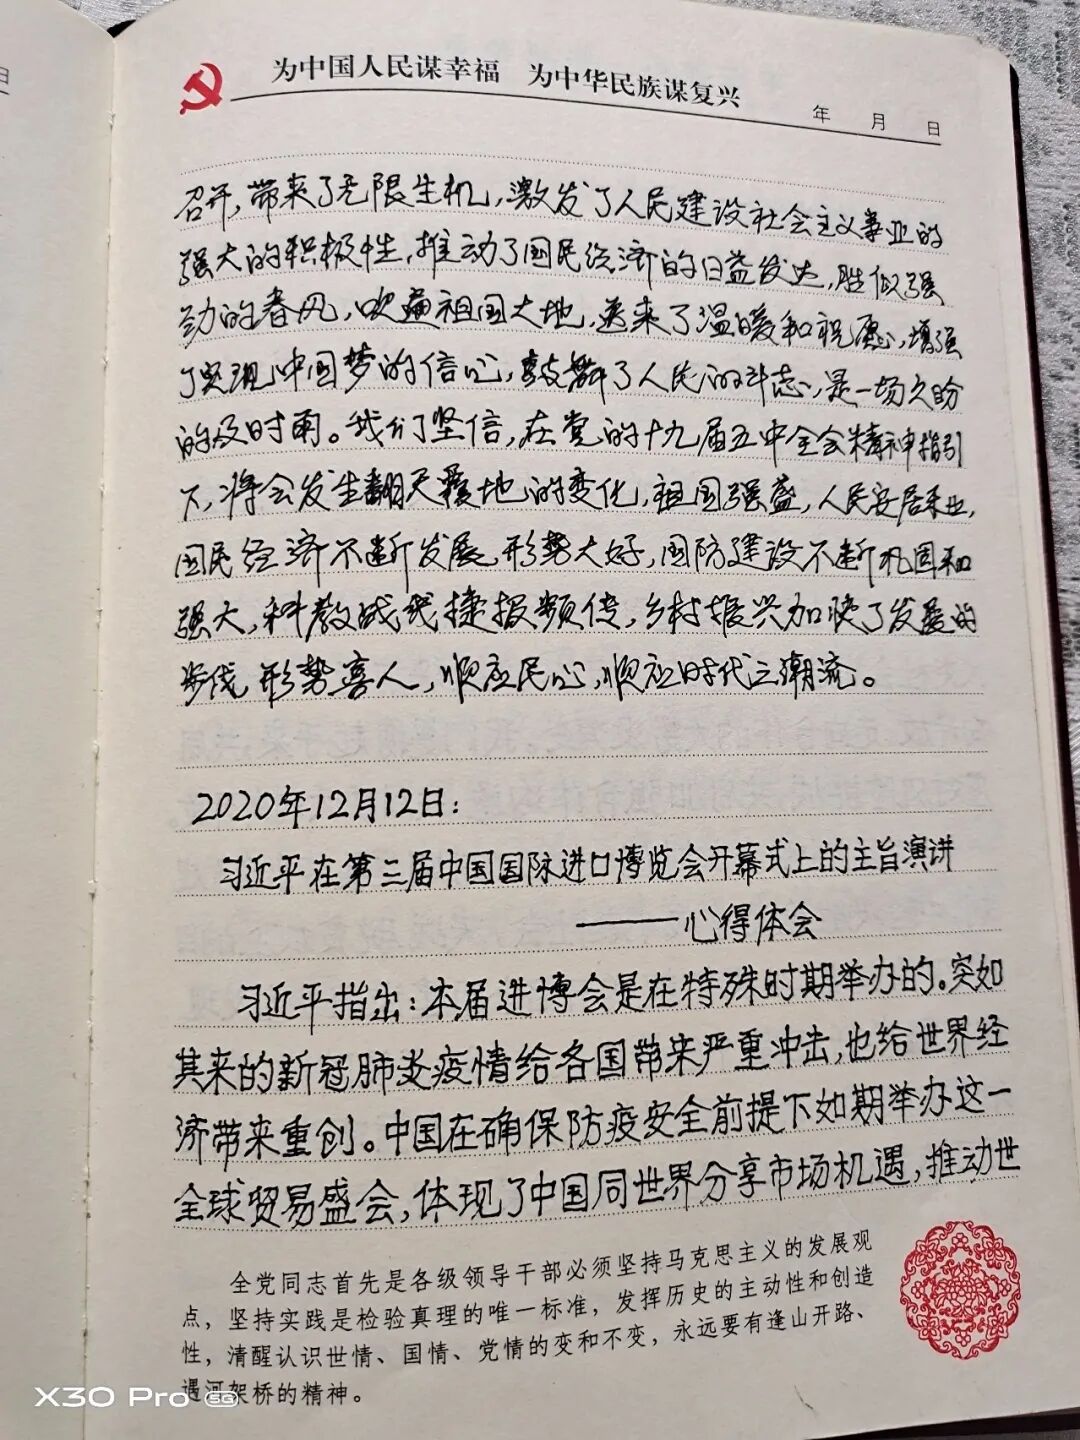 为中国人民谋幸福 为中华民族谋复兴
年 月 日
召开，带来了无限生机，激发了人民建设社会主义事业的
强大的积极性，推动了国民经济的日益发达，胜似强
劲的春风，吹遍祖国大地，送来了温暖和祝愿，增强
了实现中国梦的信心，鼓舞了人民的斗志，是一场久盼
的及时雨。我们坚信，在党的十九届五中全会精神指引
下，将会发生翻天覆地的变化，祖国强盛，人民安居乐业，
国民经济不断发展，形势大好，国防建设不断巩固和
强大，科教战线捷报频传，乡村振兴加快了发展的
步伐，形势喜人，顺应民心，顺应时代之潮流。
2020年12月12日：
习近平在第三届中国国际进口博览会开幕式上的主旨演讲
——心得体会
习近平指出：本届进博会是在特殊时期举办的。突如
其来的新冠肺炎疫情给各国带来严重冲击，也给世界经
济带来重创。中国在确保防疫安全前提下如期举办这一
全球贸易盛会，体现了中国同世界分享市场机遇，推动世
全党同志首先是各级领导干部必须坚持马克思主义的发展观
点，坚持实践是检验真理的唯一标准，发挥历史的主动性和创造
性，清醒认识世情、国情、党情的变和不变，永远要有逢山开路、
遇河架桥的精神。
X30 Pro 5G